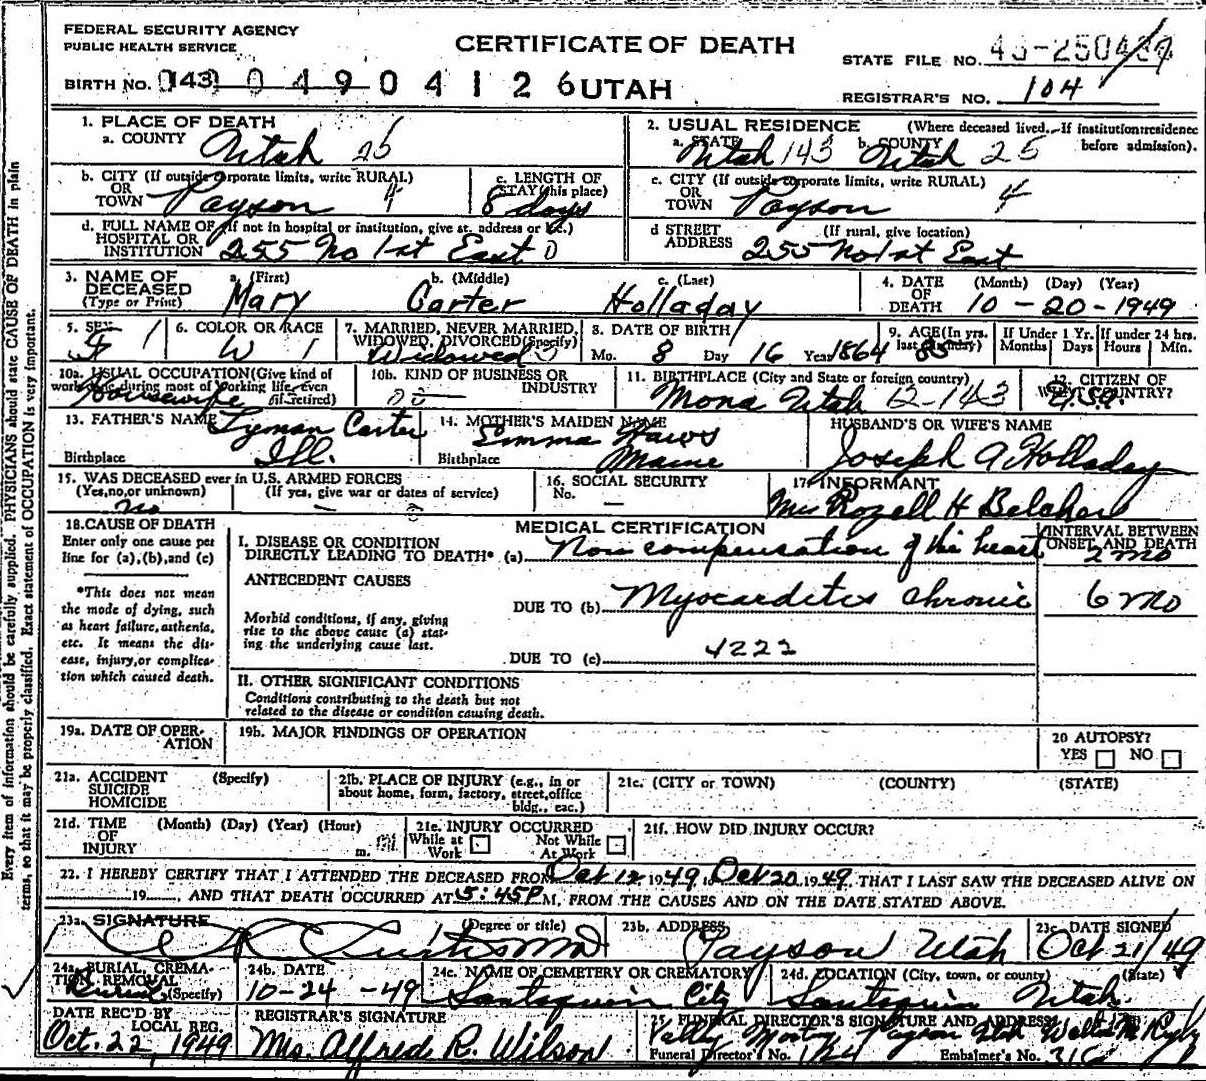 FEDERAL SECURITY AGENCY
PUBLIC HEALTH SERVICE
CERTIFICATE OF DEATH
STATE FILE NO.
BIRTH NO. 143 0 4 9 0 4 1 2 6 UTAH
REGISTRAR'S NO. 104
1. PLACE OF DEATH
a. COUNTY Utah 25
2. USUAL RESIDENCE (Where deceased lived. If institution: residence before admission).
a. STATE Utah 143 b. COUNTY Utah 25
b. CITY (If outside corporate limits, write RURAL) OR TOWN Payson 4
c. LENGTH OF STAY (this place) 8 days
c. CITY (If outside corporate limits, write RURAL) OR TOWN Payson 4
d. FULL NAME OF (If not in hospital or institution, give st. address or loc.) HOSPITAL OR INSTITUTION 255 No 1st East 0
d STREET ADDRESS (If rural, give location) 255 No 1st East
3. NAME OF DECEASED (Type or Print)
a. (First) Mary
b. (Middle) Carter
c. (Last) Holladay
4. DATE OF DEATH (Month) (Day) (Year) 10-20-1949
5. SEX F 1
6. COLOR OR RACE W 1
7. MARRIED, NEVER MARRIED, WIDOWED, DIVORCED (Specify) Widowed
8. DATE OF BIRTH Mo. 8 Day 16 Year 1864
9. AGE (In yrs. last birthday) 85
If Under 1 Yr. Months Days
If under 24 hrs. Hours Min.
10a. USUAL OCCUPATION (Give kind of work done during most of working life, even if retired) Housewife
10b. KIND OF BUSINESS OR INDUSTRY
11. BIRTHPLACE (City and State or foreign country) Mona Utah 12-143
12. CITIZEN OF WHAT COUNTRY? U.S.A.
13. FATHER'S NAME Lyman Carter
Birthplace Ill.
14. MOTHER'S MAIDEN NAME Emma Haws
Birthplace Maine
HUSBAND'S OR WIFE'S NAME
Joseph A Holladay
15. WAS DECEASED ever in U.S. ARMED FORCES
(Yes, no, or unknown) no (If yes, give war or dates of service) -
16. SOCIAL SECURITY No. —
17. INFORMANT
Mrs Rozell H Belcher
18. CAUSE OF DEATH
Enter only one cause per line for (a), (b), and (c)
*This does not mean the mode of dying, such as heart failure, asthenia, etc. It means the disease, injury, or complication which caused death.
MEDICAL CERTIFICATION
INTERVAL BETWEEN ONSET AND DEATH
I. DISEASE OR CONDITION DIRECTLY LEADING TO DEATH* (a) Non compensation of the heart 2 mo
ANTECEDENT CAUSES
DUE TO (b) Myocarditis chronic 6 mo
Morbid conditions, if any, giving rise to the above cause (a) stating the underlying cause last.
4222
DUE TO (c)
II. OTHER SIGNIFICANT CONDITIONS
Conditions contributing to the death but not related to the disease or condition causing death.
19a. DATE OF OPERATION
19b. MAJOR FINDINGS OF OPERATION
20 AUTOPSY? YES NO
21a. ACCIDENT SUICIDE HOMICIDE (Specify)
21b. PLACE OF INJURY (e.g., in or about home, form, factory, street, office bldg., eac.)
21c. (CITY or TOWN) (COUNTY) (STATE)
21d. TIME OF INJURY (Month) (Day) (Year) (Hour) m.
21e. INJURY OCCURRED While at Work Not While At Work
21f. HOW DID INJURY OCCUR?
22. I HEREBY CERTIFY THAT I ATTENDED THE DECEASED FROM Oct 12 1949 to Oct 20 1949, THAT I LAST SAW THE DECEASED ALIVE ON
19......, AND THAT DEATH OCCURRED AT 5:45P M, FROM THE CAUSES AND ON THE DATE STATED ABOVE.
23a. SIGNATURE (Degree or title) Curtis MD
23b. ADDRESS Payson Utah
23c. DATE SIGNED Oct 21/49
24a. BURIAL, CREMATION, REMOVAL (Specify) Burial
24b. DATE 10-24-49
24c. NAME OF CEMETERY OR CREMATORY Santaquin City
24d. LOCATION (City, town, or county) (State) Santaquin Utah.
DATE REC'D BY LOCAL REG. Oct. 22, 1949
REGISTRAR'S SIGNATURE
Mrs. Alfred R. Wilson
25. FUNERAL DIRECTOR'S SIGNATURE AND ADDRESS
Funeral Director's No. 124 Embalmer's No.
Every item of information should be carefully supplied. PHYSICIANS should state CAUSE OF DEATH in plain
terms, so that it may be properly classified. Exact statement of OCCUPATION is very important.